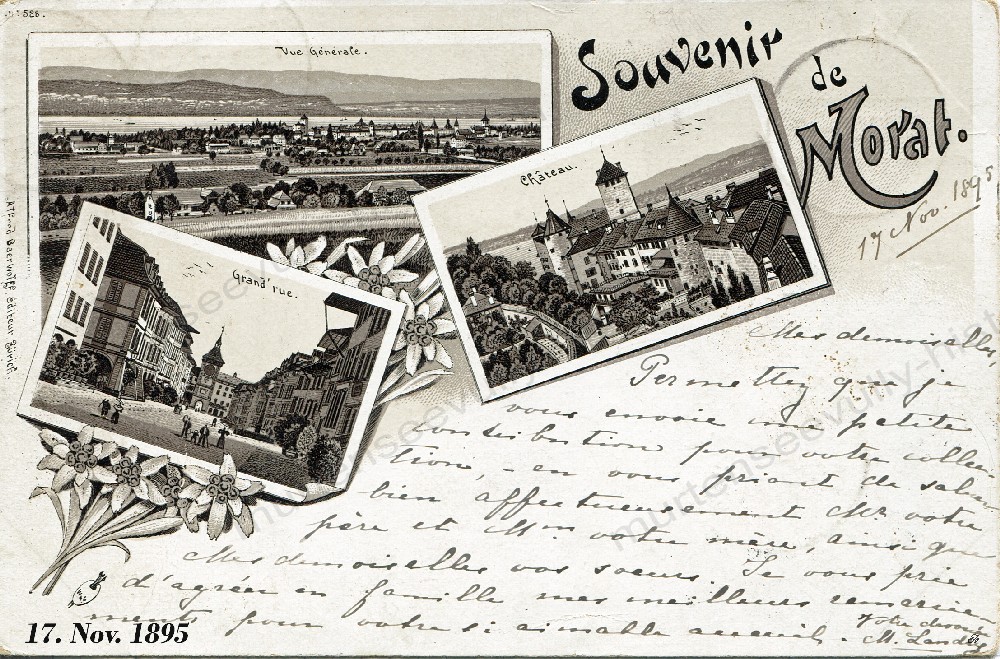 528.
Vue Générale.
Souvenir
de
Morat.
17 Nov. 1895
Château.
Grand'rue.
Alfred Baerwolff éditeur Zürich.
Mes demoiselles,
Permettez que je
vous envoie une petite
contribution pour votre collec
tion, - en vous priant de saluer
bien affectueusement Mr votre
père et Mme votre mère, ainsi que
Mes demoiselles vos soeurs. Je vous prie
d'agréer en famille mes meilleurs remercie
ments pour votre si aimable accueil. Votre dévoué
M.
17. Nov. 1895
murtenseevully-hist